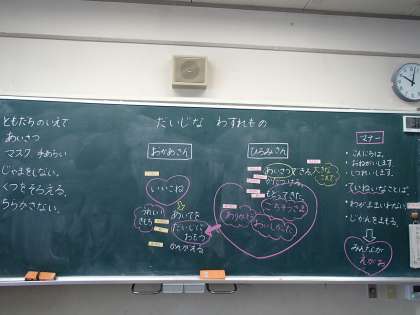 だいじな わすれもの
ともだちのいえで
あいさつ
マスク 手あらい
じゃまをしない。
くつをそろえる。
ちらかさない。
おかあさん
いいこね
うれしい
きもち
あいてを
だいじに
おもう
かんがえる
ひろみさん
あいさつ
大きな
こえで
かたづける。
もってきた
ありがとう
おいしかった
マナー
・こんにちは。
おねがいします。
しつれいします。
・ていねいなことば
・わがままいわない。
・じかんをまもる。
みんなが
えがお